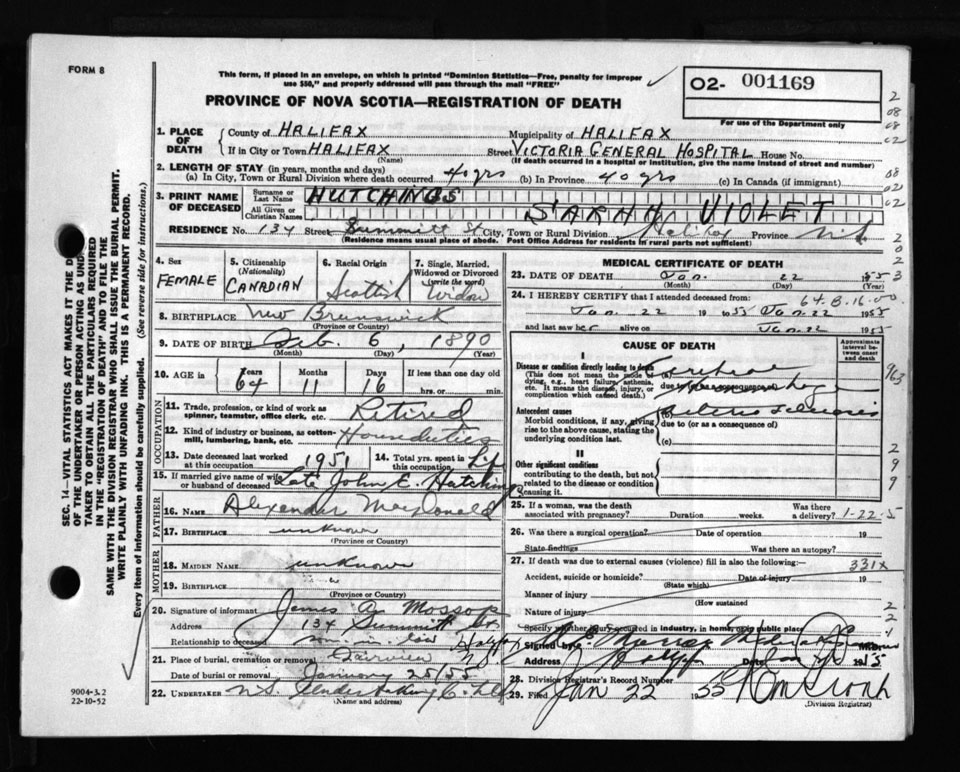 FORM 8
This form, if placed in an envelope, on which is printed "Dominion Statistics—Free, penalty for improper
use $50," and properly addressed will pass through the mail "FREE"
PROVINCE OF NOVA SCOTIA—REGISTRATION OF DEATH
02- 001169
For use of the Department only
1. PLACE OF DEATH
County of HALIFAX Municipality of HALIFAX
If in City or Town HALIFAX Street VICTORIA GENERAL HOSPITAL House No.
(Name) (If death occurred in a hospital or institution, give the name instead of street and number)
2. LENGTH OF STAY (in years, months and days)
(a) In City, Town or Rural Division where death occurred 40 yrs (b) In Province 40 yrs (c) In Canada (if immigrant)
3. PRINT NAME OF DECEASED
Surname or Last Name HUTCHINGS
All Given or Christian Names SARAH VIOLET
RESIDENCE No. 134 Street Summitt St City, Town or Rural Division Halifax Province N.S.
(Residence means usual place of abode. Post Office Address for residents in rural parts not sufficient)
4. Sex FEMALE
5. Citizenship (Nationality) CANADIAN
6. Racial Origin Scottish
7. Single, Married, Widowed or Divorced (write the word) Widow
8. BIRTHPLACE New Brunswick
(Province or Country)
9. DATE OF BIRTH 6, 1890
(Month) (Day) (Year)
10. AGE in Years 64 Months 11 Days 16 If less than one day old
hrs. or min.
OCCUPATION
11. Trade, profession, or kind of work as spinner, teamster, office clerk, etc. Retired
12. Kind of industry or business, as cotton-mill, lumbering, bank, etc. House duties
13. Date deceased last worked at this occupation 1951 14. Total yrs. spent in this occupation Life
15. If married give name of wife or husband of deceased Late John E. Hutchings
FATHER
16. NAME Alexander MacDonald
17. BIRTHPLACE unknown
(Province or Country)
MOTHER
18. MAIDEN NAME unknown
19. BIRTHPLACE "
(Province or Country)
20. Signature of informant James A. Mossop
Address 134 Summitt St.
Relationship to deceased son in law Halifax
21. Place of burial, cremation or removal Fairview
Date of burial or removal January 25/55
22. UNDERTAKER N.S. Undertaking Co. Ltd
(Name and address)
MEDICAL CERTIFICATE OF DEATH
23. DATE OF DEATH Jan. 22 1955
(Month) (Day) (Year)
24. I HEREBY CERTIFY that I attended deceased from: 64.B.16.00
Jan. 22 1955 to Jan. 22 1955
and last saw her alive on Jan. 22 1955
CAUSE OF DEATH
Approximate interval between onset and death
I
Disease or condition directly leading to death
(This does not mean the mode of dying, e.g., heart failure, asthenia, etc. It means the disease, injury, or complication which caused death.)
(a) Cerebral
due to
Antecedent causes
Morbid conditions, if any, giving rise to the above cause, stating the underlying condition last.
(b)
due to (or as a consequence of)
(c)
II
Other significant conditions
contributing to the death, but not related to the disease or condition causing it.
25. If a woman, was the death associated with pregnancy? Duration weeks. Was there a delivery? 1-22-5
26. Was there a surgical operation? Date of operation 19
State findings Was there an autopsy?
27. If death was due to external causes (violence) fill in also the following:— 331X
Accident, suicide or homicide? Date of injury 19
(State which)
Manner of injury
(How sustained
Nature of injury
Specify whether injury occurred in industry, in home, or in public place
Signed by
Address Halifax Date
28. Division Registrar's Record Number
29. Filed Jan 22 1955
(Division Registrar)
SEC. 14—VITAL STATISTICS ACT MAKES IT THE DU
OF THE UNDERTAKER OR PERSON ACTING AS UND
TAKER TO OBTAIN ALL THE PARTICULARS REQUIRED
IN THE "REGISTRATION OF DEATH" AND TO FILE THE
SAME WITH THE DIVISION REGISTRAR WHO SHALL ISSUE THE BURIAL PERMIT.
WRITE PLAINLY WITH UNFADING INK. THIS IS A PERMANENT RECORD.
Every item of information should be carefully supplied. (See reverse side for instructions.)
9004-3.2
22-10-52